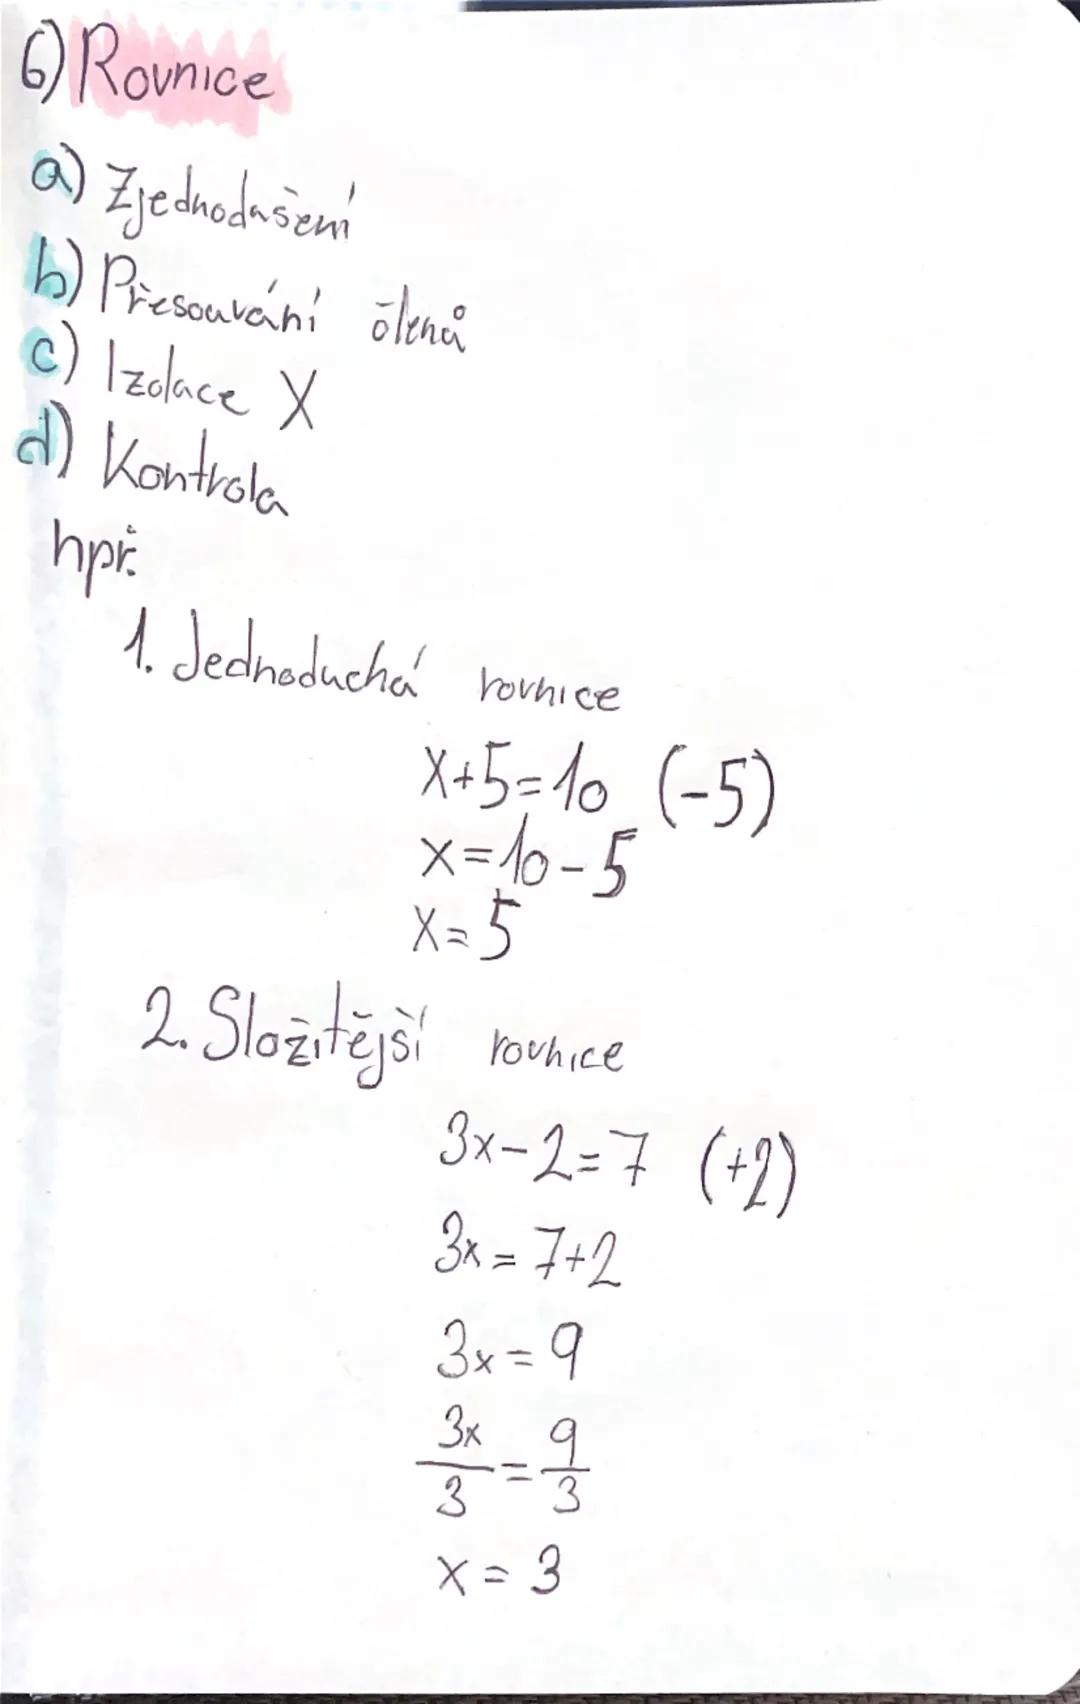 6) Rovnice
a) Zjednodušení
b) Přesouvání členů
c) Izolace X
d) Kontrola
npř.
1. Jednoduchá rovnice
x+5=10 (-5)
x=10-5
x=5
2. Složitější rovnice
3x-2=7 (+2)
3x=7+2
3x=9
3x/3=9/3
x=3